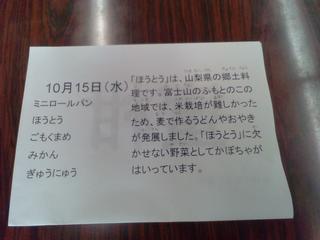 10月15日(水)
ミニロールパン
ほうとう
ごもくまめ
みかん
ぎゅうにゅう
「ほうとう」は、山梨県の郷土料
理です。富士山のふもとのこの
地域では、米栽培が難しかった
ため、麦で作るうどんやおやき
が発展しました。「ほうとう」に欠
かせない野菜としてかぼちゃが
はいっています。